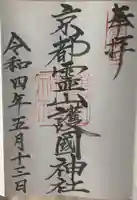 奉拝
京都霊山護國神社
令和四年五月十三日